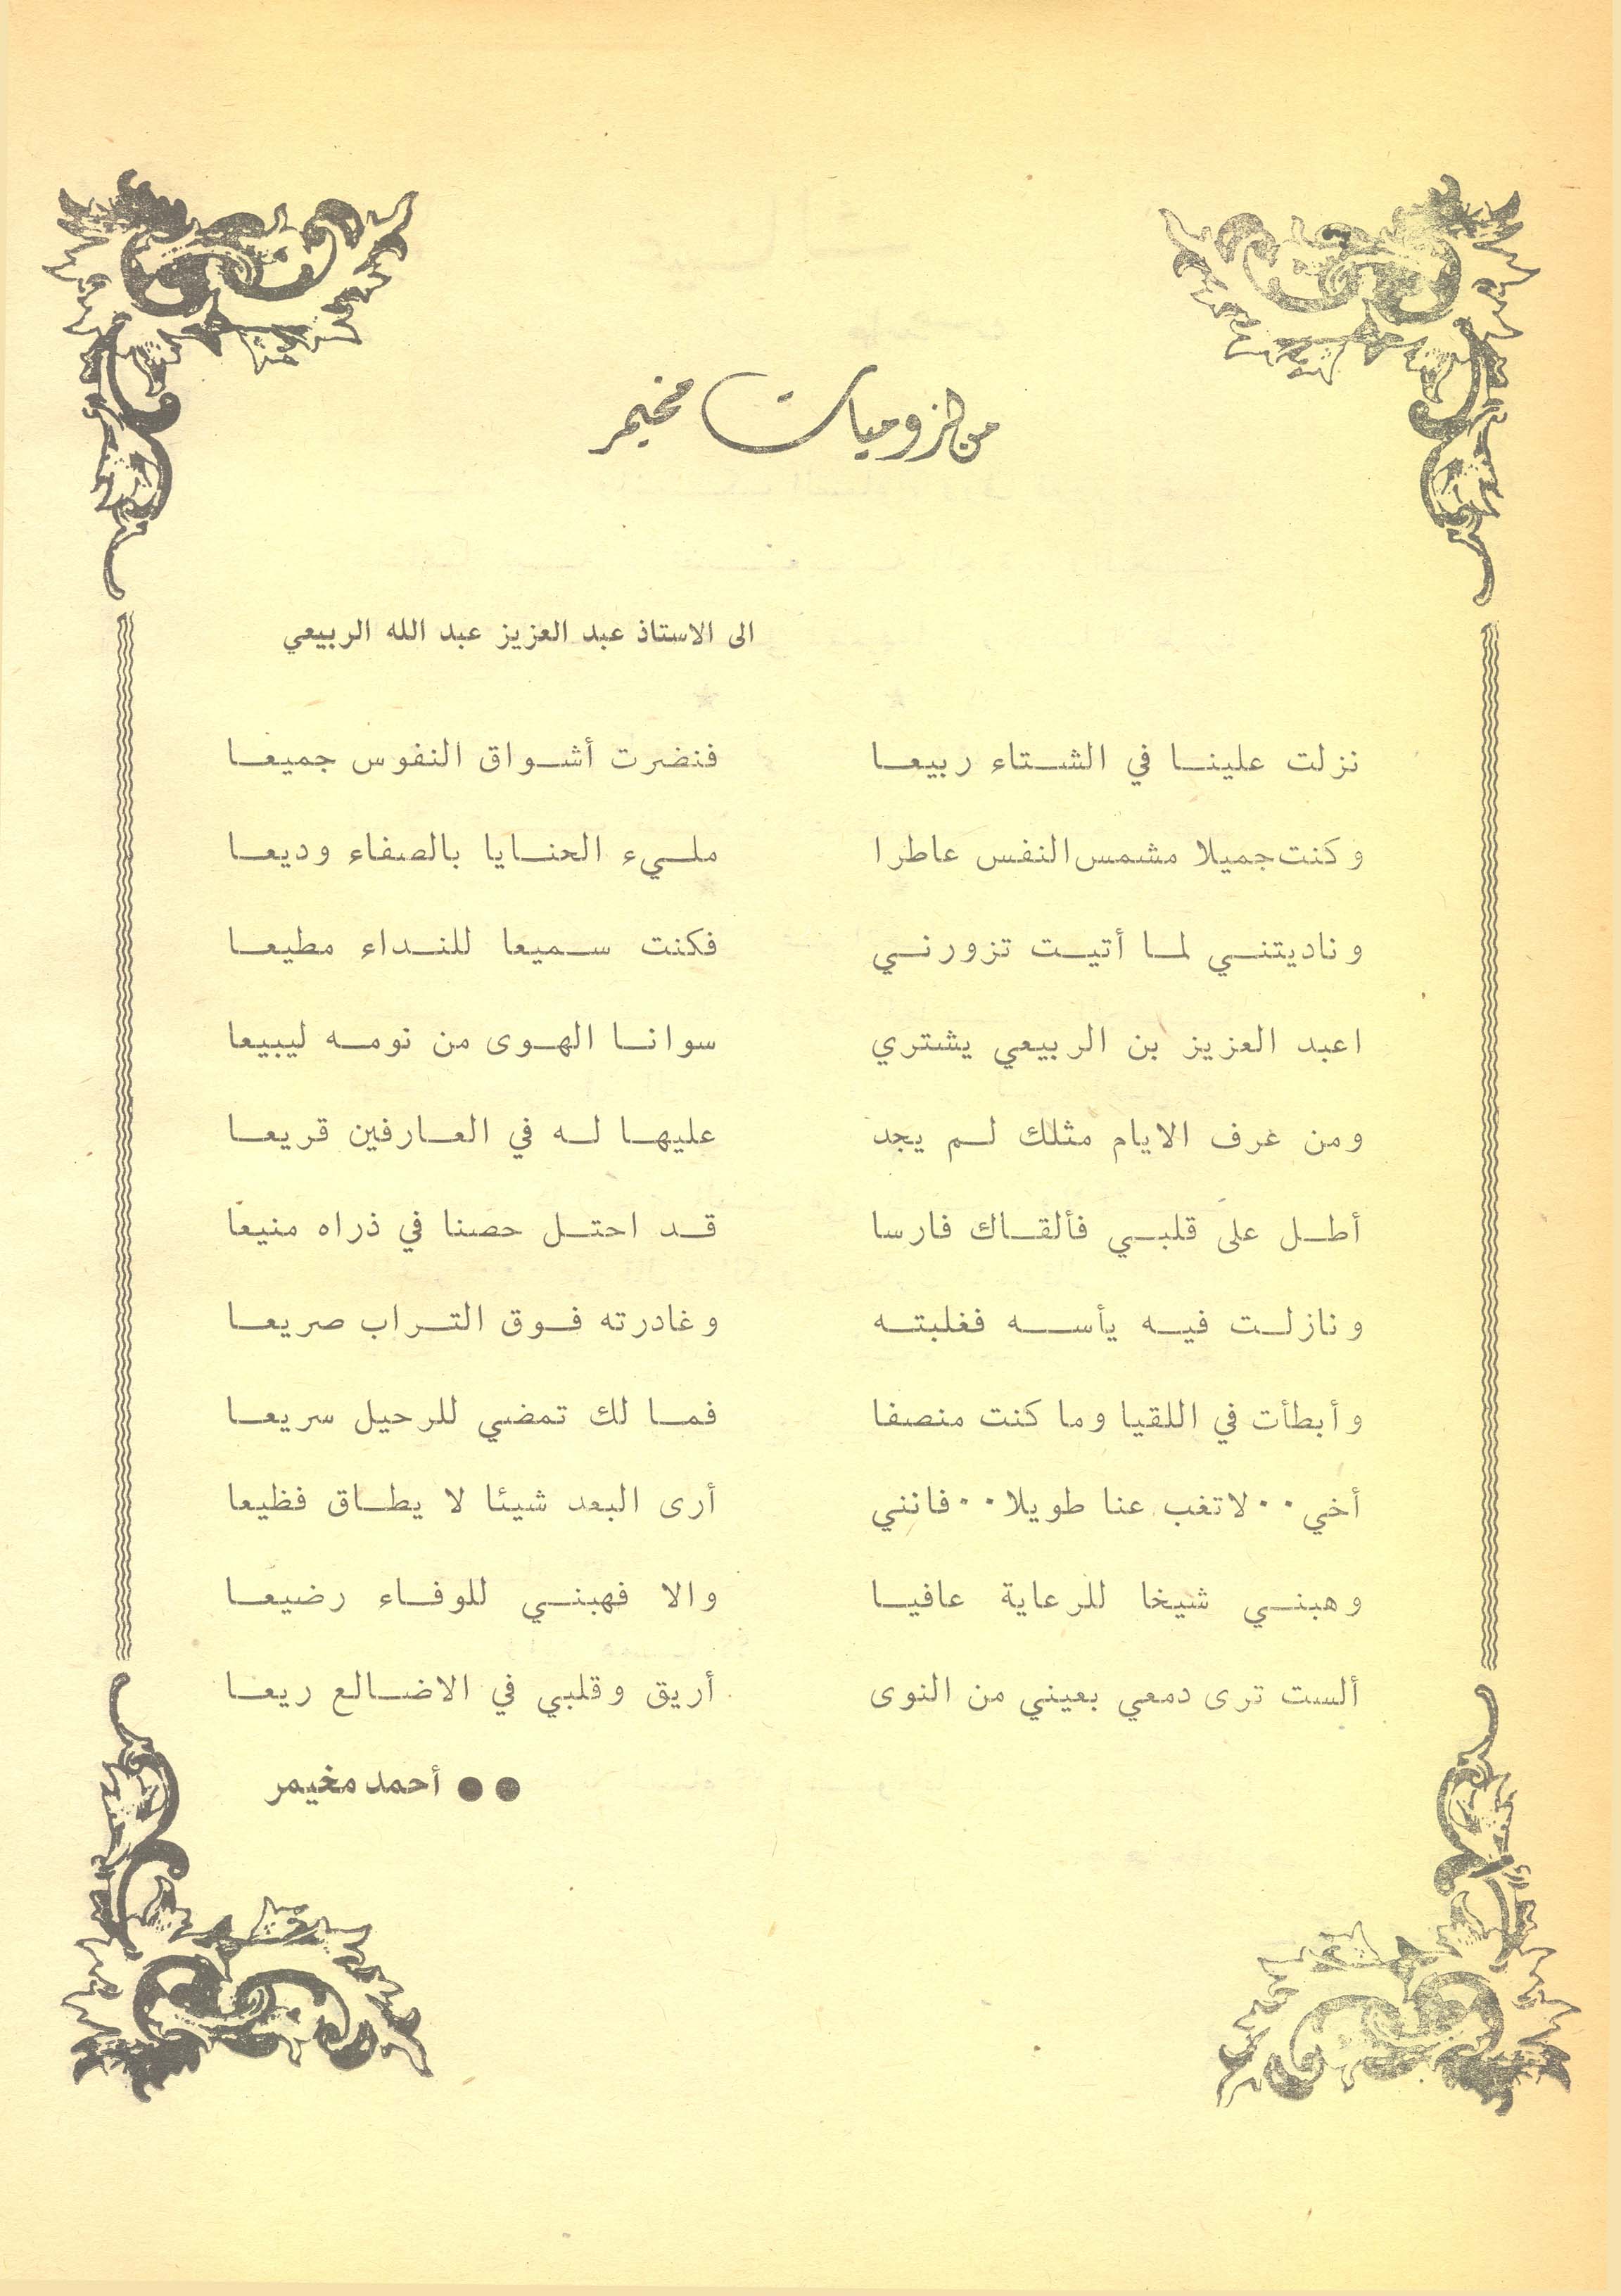 من لزوميات مخيمر
الى الاستاذ عبد العزيز عبد الله الربيعي
نزلت علينا في الشتاء ربيعا فنضرت أشواق النفوس جميعا
وكنت جميلا مشمس النفس عاطرا مليء الحنايا بالصفاء وديعا
وناديتني لما أتيت تزورني فكنت سميعا للنداء مطيعا
اعبد العزيز بن الربيعي يشتري سوانا الهوى من نومه ليبيعا
ومن عرف الايام مثلك لم يجد عليها له في العارفين قريعا
أطل على قلبي فألقاك فارسا قد احتل حصنا في ذراه منيعا
ونازلت فيه يأسه فغلبته وغادرته فوق التراب صريعا
وأبطأت في اللقيا وما كنت منصفا فما لك تمضي للرحيل سريعا
أخي .. لا تغب عنا طويلا .. فانني أرى البعد شيئا لا يطاق فظيعا
وهبني شيخا للرعاية عافيا والا فهبني للوفاء رضيعا
ألست ترى دمعي بعيني من النوى أريق وقلبي في الاضالع ريعا
●● أحمد مخيمر